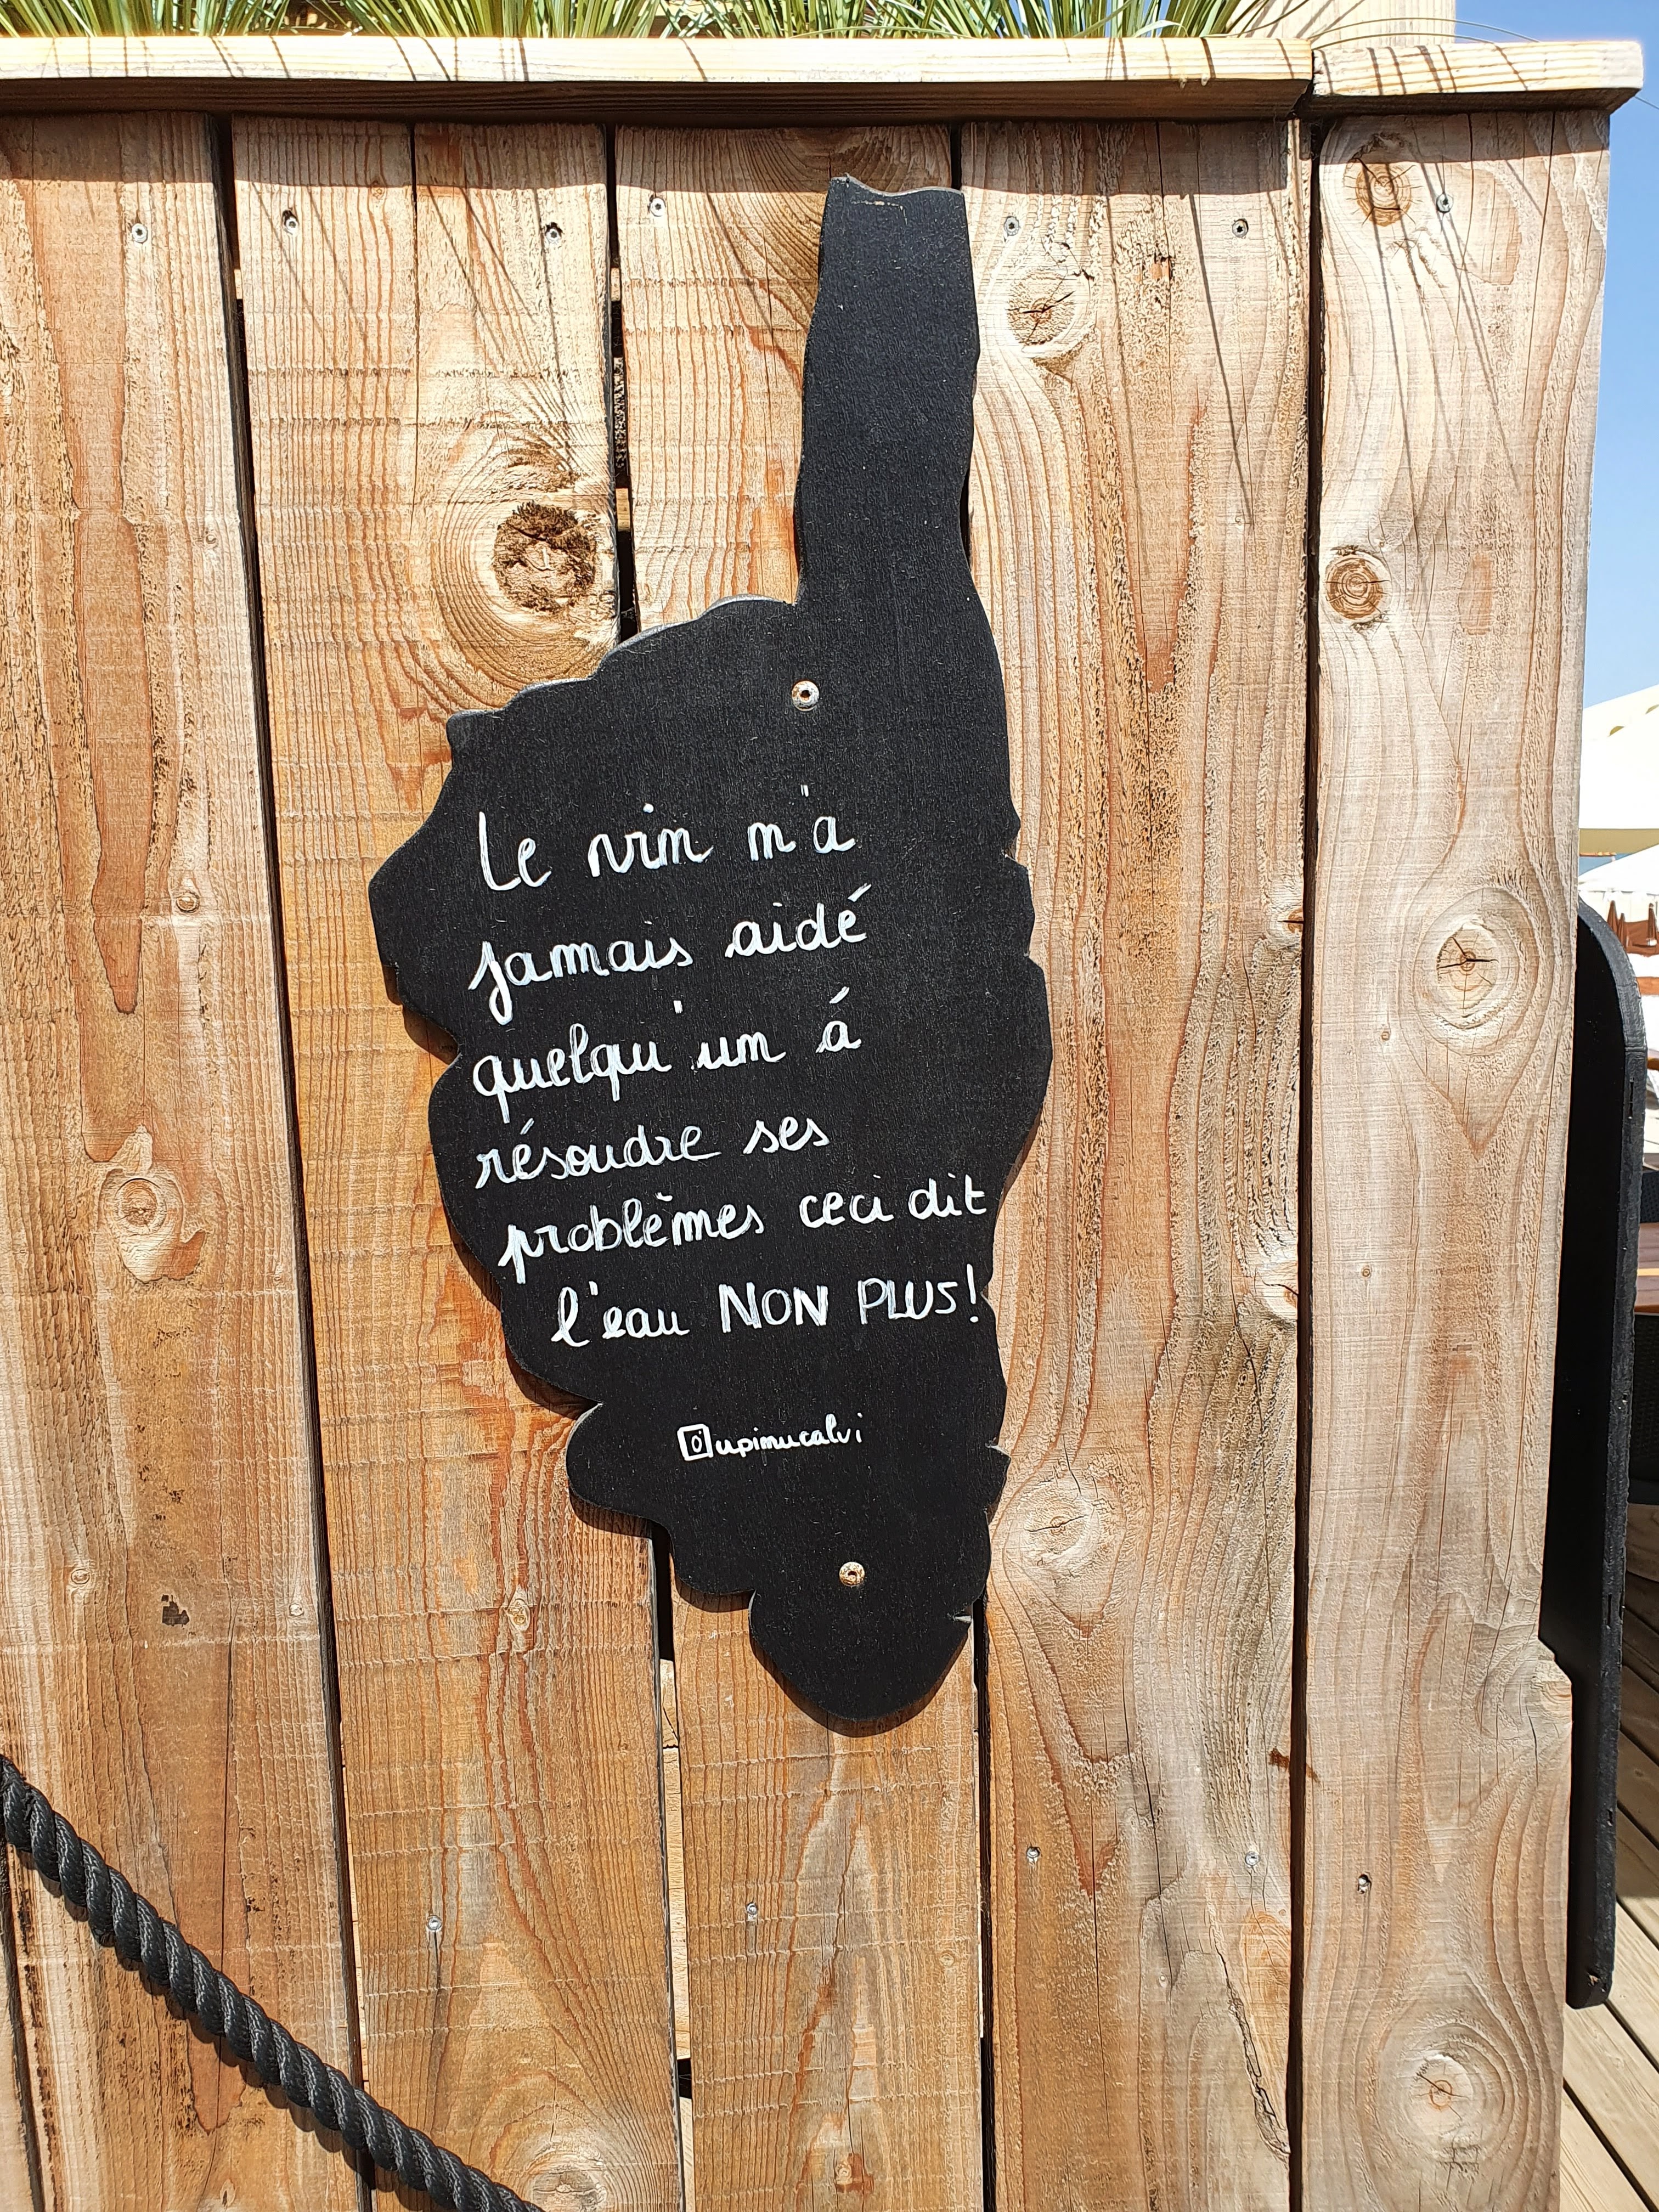 Le vin n'a
jamais aidé
quelqu'un á
résoudre ses
problèmes ceci dit
l'eau NON PLUS!
upinucalvi